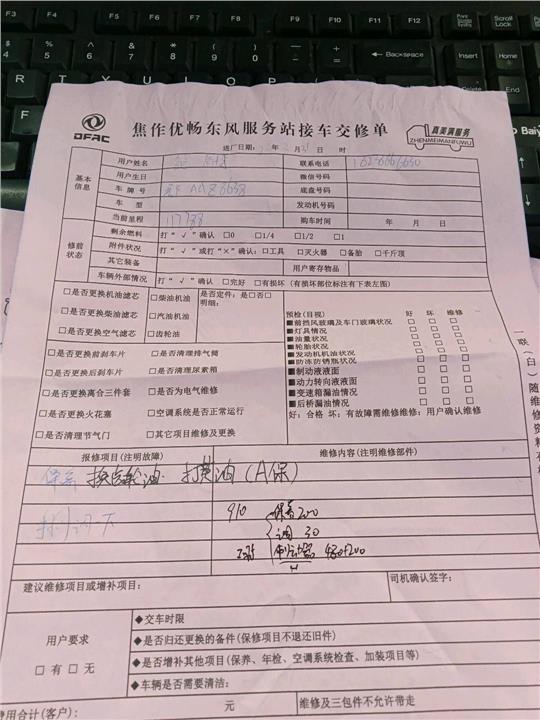 F3 F4 F5 F6 F7 F8 F9 F10 F11 F12 Scroll Lock
4 5 6 7 8 9 0 Backspace Insert Home
R T Y U I O P Delete End
DFAC
焦作优畅东风服务站接车交修单
真美满服务
ZHENMEIMANFUWU
进厂日期: 年 月 日 时
基本信息
用户姓名 联系电话
用户生日 微信号码
车牌号 底盘号码
车型 发动机号码
当前里程 117788 购车时间 年 月 日
修前状态
剩余燃料 打“√”确认 □0 □1/4 □1/2 □1
附件状况 打“√”或打“×”确认:□工具 □灭火器 □备胎 □千斤顶
其它装备 用户寄存物品
车辆外部情况 打“√”确认 □完好 □有损坏(有损坏部位标注有下表左图)
□是否更换机油滤芯 □柴油机油 是否定件:是□否□
明细:
□是否更换柴油滤芯 □汽油机油
□是否更换空气滤芯 □齿轮油
□是否更换前刹车片 □是否清理排气筒
□是否更换后刹车片 □是否清理尿素箱
□是否更换离合三件套 □是否为电气维修
□是否更换火花塞 □空调系统是否正常运行
□是否清理节气门 □其它项目维修及更换
预检(目视) 好 坏 维修
■前挡风玻璃及车门玻璃状况 □ □ □
■灯具情况 □ □ □
■油量状况 □ □ □
■轮胎状况 □ □ □
■发动机机油状况 □ □ □
■防冻防锈瓶状况 □ □ □
■制动液液面 □ □ □
■动力转向液液面 □ □ □
■变速箱漏油情况 □ □ □
■后桥漏油情况 □ □ □
好:合格 坏:有故障需维修维修:用户确认维修
一联(白)随维修资料存
报修项目(注明故障) 维修内容(注明维修部件)
保养 换齿轮油. 打黄油(A保)
910 保养200
调 30
480+200
建议维修项目或增补项目: 司机确认签字:
用户要求
□有 □无
◆交车时限
◆是否归还更换的备件(保修项目不退还旧件)
◆是否增补其他项目(保养、年检、空调系统检查、加装项目等)
◆车辆是否需要清洁:
费用合计(客户): 元 维修及三包件不允许带走